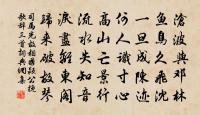 滄波與鄧林
魚鳥久飛沈
一旦成陳迹
何人識寸心
高山亡景行
流水失知音
淚盡解東閣
歸來破故琴
司馬光故相國頴公挽
歌辭三首詞典網書